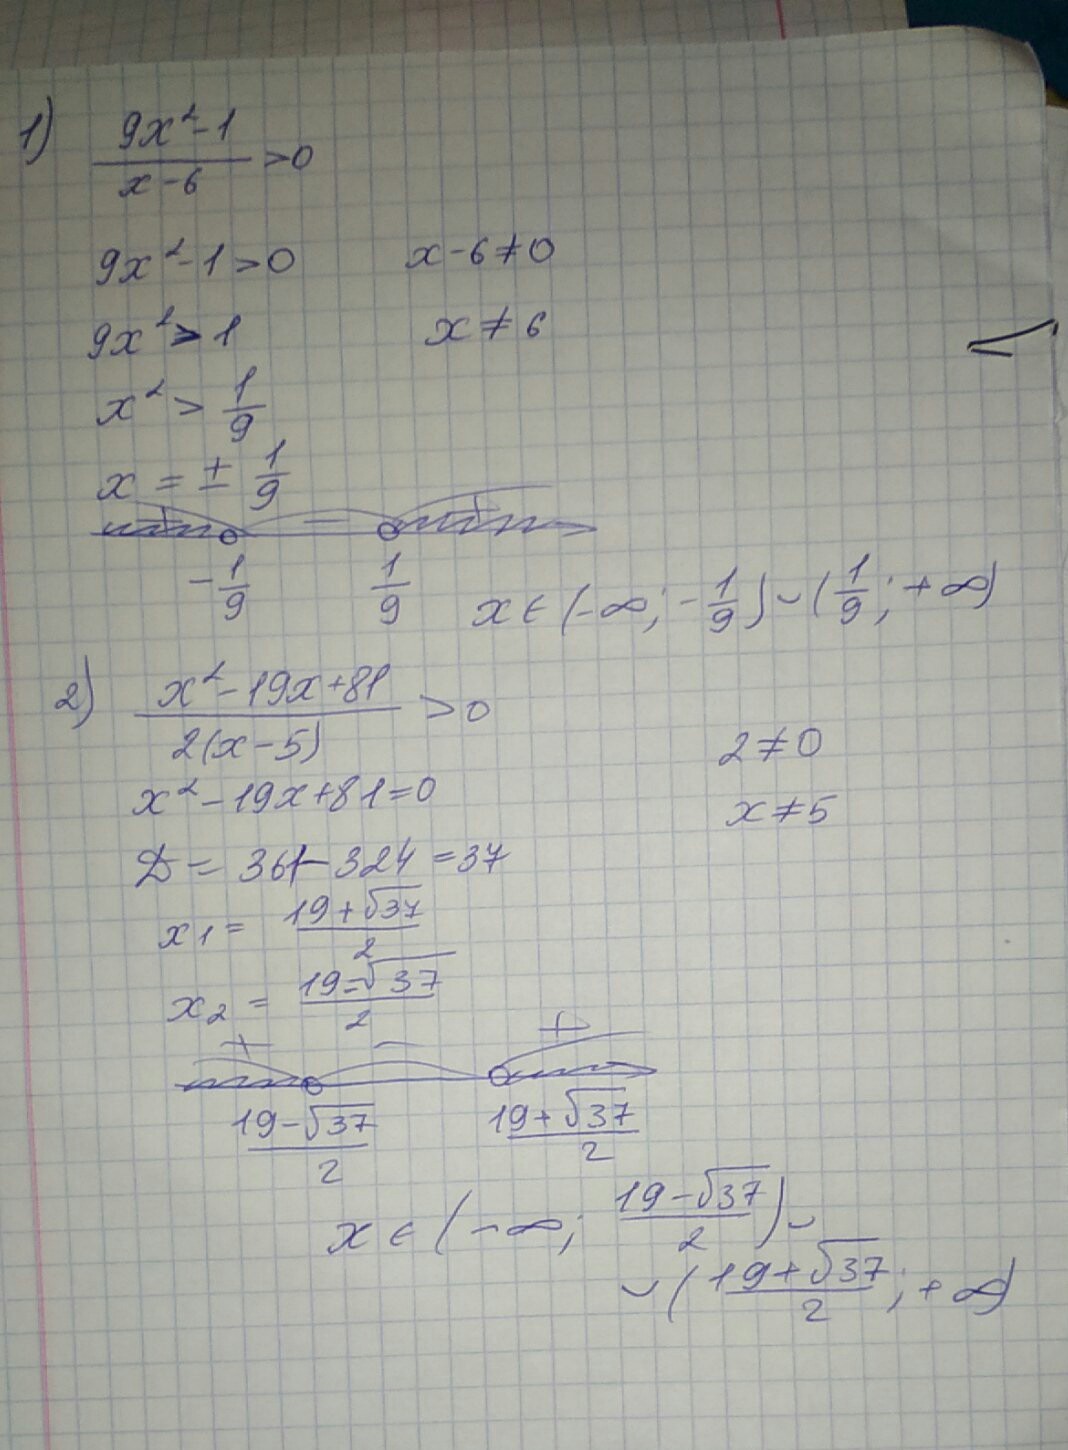 1) (9x² - 1)/(x - 6) > 0
9x² - 1 > 0    x - 6 ≠ 0
9x² > 1    x ≠ 6
<
x² > 1/9
x = ± 1/9
+ − +
-1/9    1/9    x ∈ (-∞; -1/9) ∪ (1/9; +∞)
2) (x² - 19x + 81)/(2(x - 5)) > 0    2 ≠ 0
x² - 19x + 81 = 0    x ≠ 5
D = 361 - 324 = 37
x1 = (19 + √37)/2
x2 = (19 - √37)/2
+ − +
(19 - √37)/2    (19 + √37)/2
x ∈ (-∞; (19 - √37)/2) ∪
∪ ((19 + √37)/2; +∞)